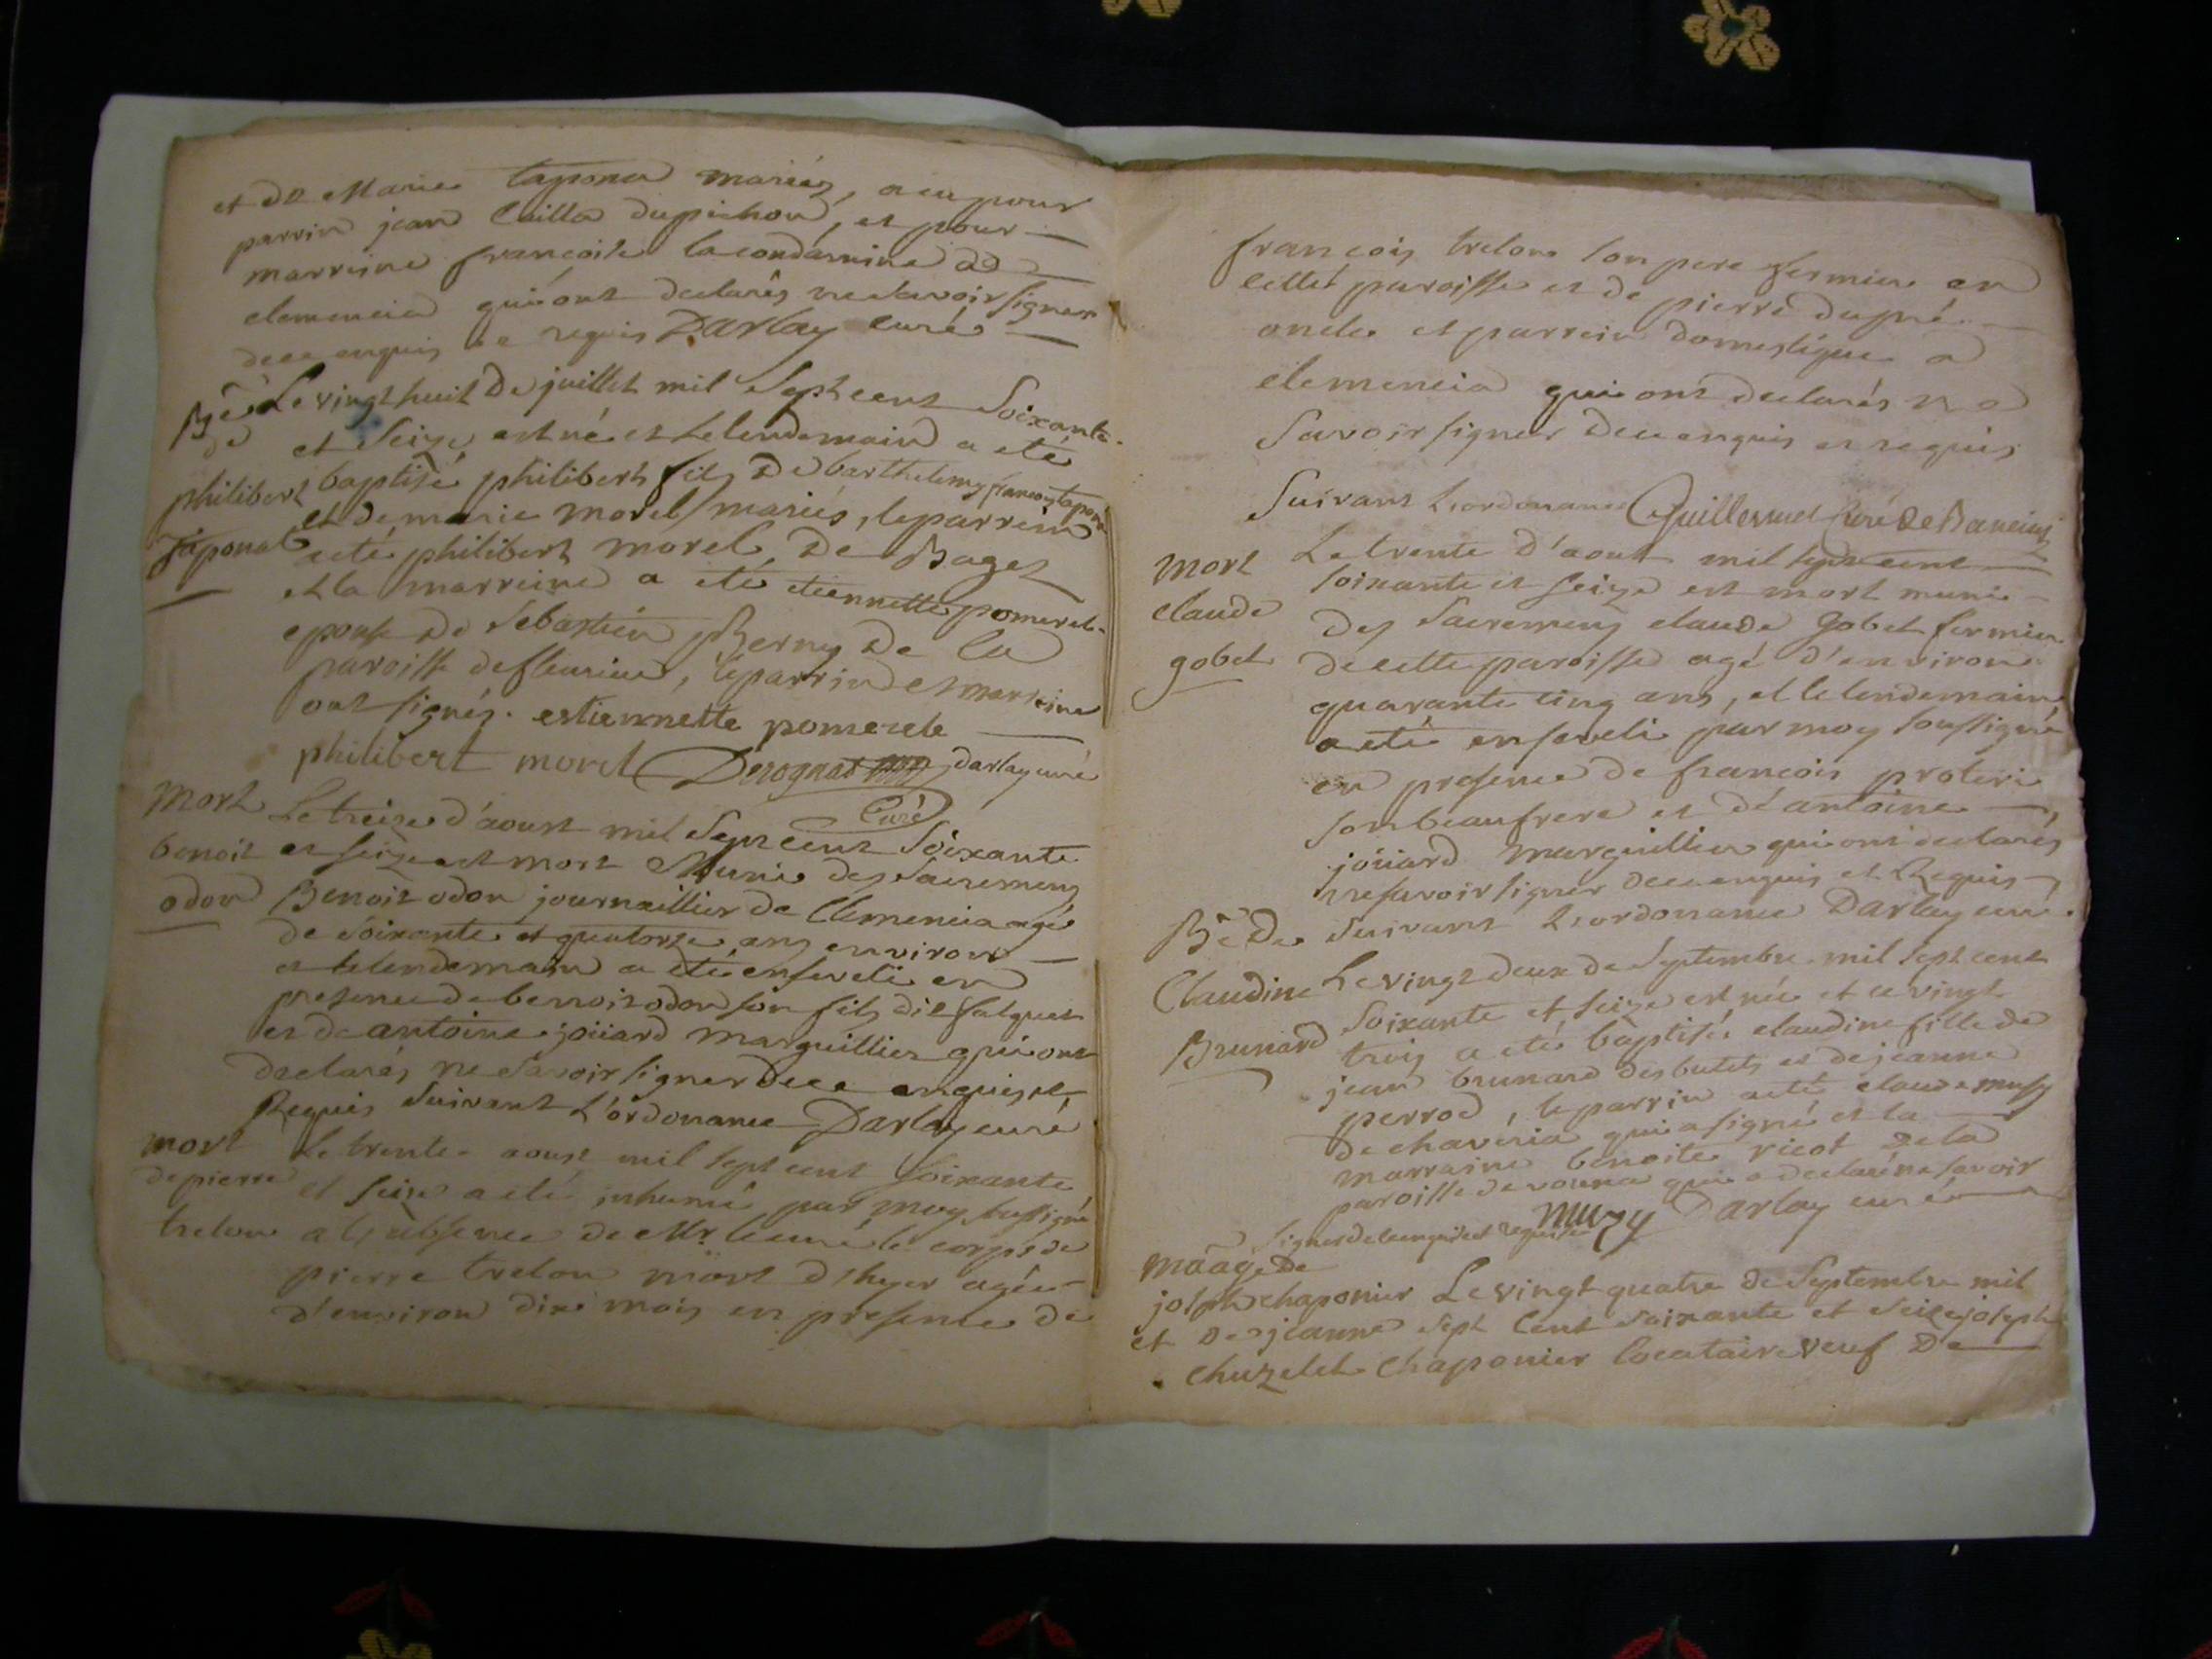 et de Marie tapona mariés, a eu pour
parrin jean Cailla dupichou, et pour
marreine francoise lacondamine de
clemencia qui ont declarés ne savoir signer
de ce enquis et requis Darlay curé
Bme Le vingt huit de juillet mil Sept cent Soixante
de et Seize est né et le lendemain a eté
philibert baptisé philibert fils de barthelemy francois tapona
taponat et de marie morel mariés, le parrein
a eté philibert morel de Bagez
et la marreine a eté etiennette pomerele
epouse de Sebastien Berny de la
paroisse de fleurieu, le parrin et marreine
ont signés. estiennette pomerele
philibert morel Derognat darlay curé
Curé
Mort Le treize d'aoust mil Sept cent Soixante
benoit et seize est mort Muni des Sacremens
odon Benoit odon journaillier de Clemencia agé
de Soixante et quatorze ans environ
et le lendemain a eté enseveli en
presence de benoit odon son fils dit falquet
et de antoine joüard marguillier qui ont
declarés ne Savoir signer de ce enquis et
Requis Suivant L'ordonance Darlay curé
mort Le trente aoust mil sept cent Soixante
de pierre et seize a eté inhumé par moy soussigné
trelon a l'absence de Mr. le curé le corps de
pierre trelon mort d'hyer agée
d'environ dix mois en presence de
françois trelon son pere fermier en
cette paroisse et de pierre dupré
oncle et parrein domestique a
clemencia qui ont declarés ne
Savoir signer de ce enquis et requis
Suivant L'ordonance Guillermet Curé de Baneins
Mort Le trente d'aout mil sept cent
soixante et seize est mort muni
claude des Sacremens claude Gobet fermier
gobet de cette paroisse agé d'environ
quarante cinq ans, et le lendemain
a eté enseveli par moy soussigné
en presence de francois
son beaufrere et de antoine
joüard marguillier qui ont declarés
ne savoir signer de ce enquis et Requis
Bme de Suivant L'ordonance Darlay curé.
Claudine Le vingt deux de Septembre mil sept cent
Soixante et seize est née et ce vingt
Brunard trois a eté baptisée claudine fille de
jean brunard des butets et de jeanne
perrod, le parrin a eté claude musy
de chaveria qui a signé et la
marraine benoite ricot de la
paroisse de vonna qui a declaré ne savoir
signer de ce enquise et requise muzy Darlay curé
maage de
joseph chaponier Le vingt quatre de Septembre mil
et de jeanne Sept Cent Soixante et Seize joseph
chuzelet Chaponier locataire veuf De